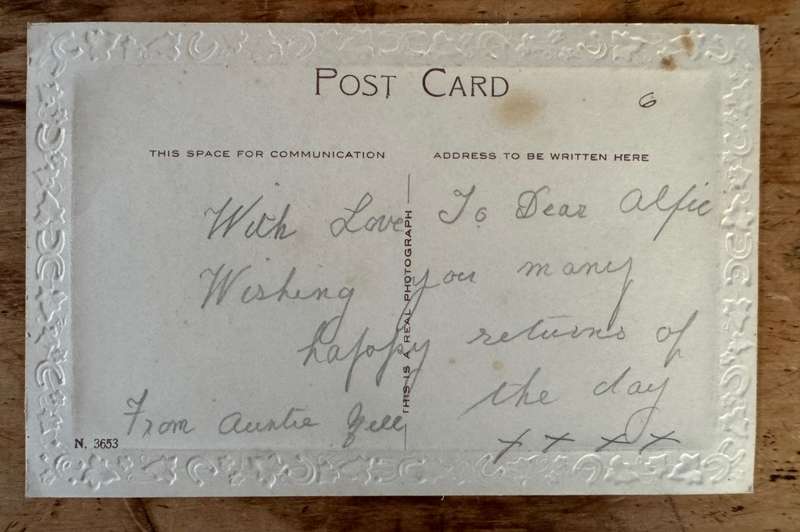 POST CARD
6
THIS SPACE FOR COMMUNICATION
ADDRESS TO BE WRITTEN HERE
THIS IS A REAL PHOTOGRAPH
With Love To Dear Alfie
Wishing you many
happy returns of
the day
From Auntie Nell
x x x x
N. 3653